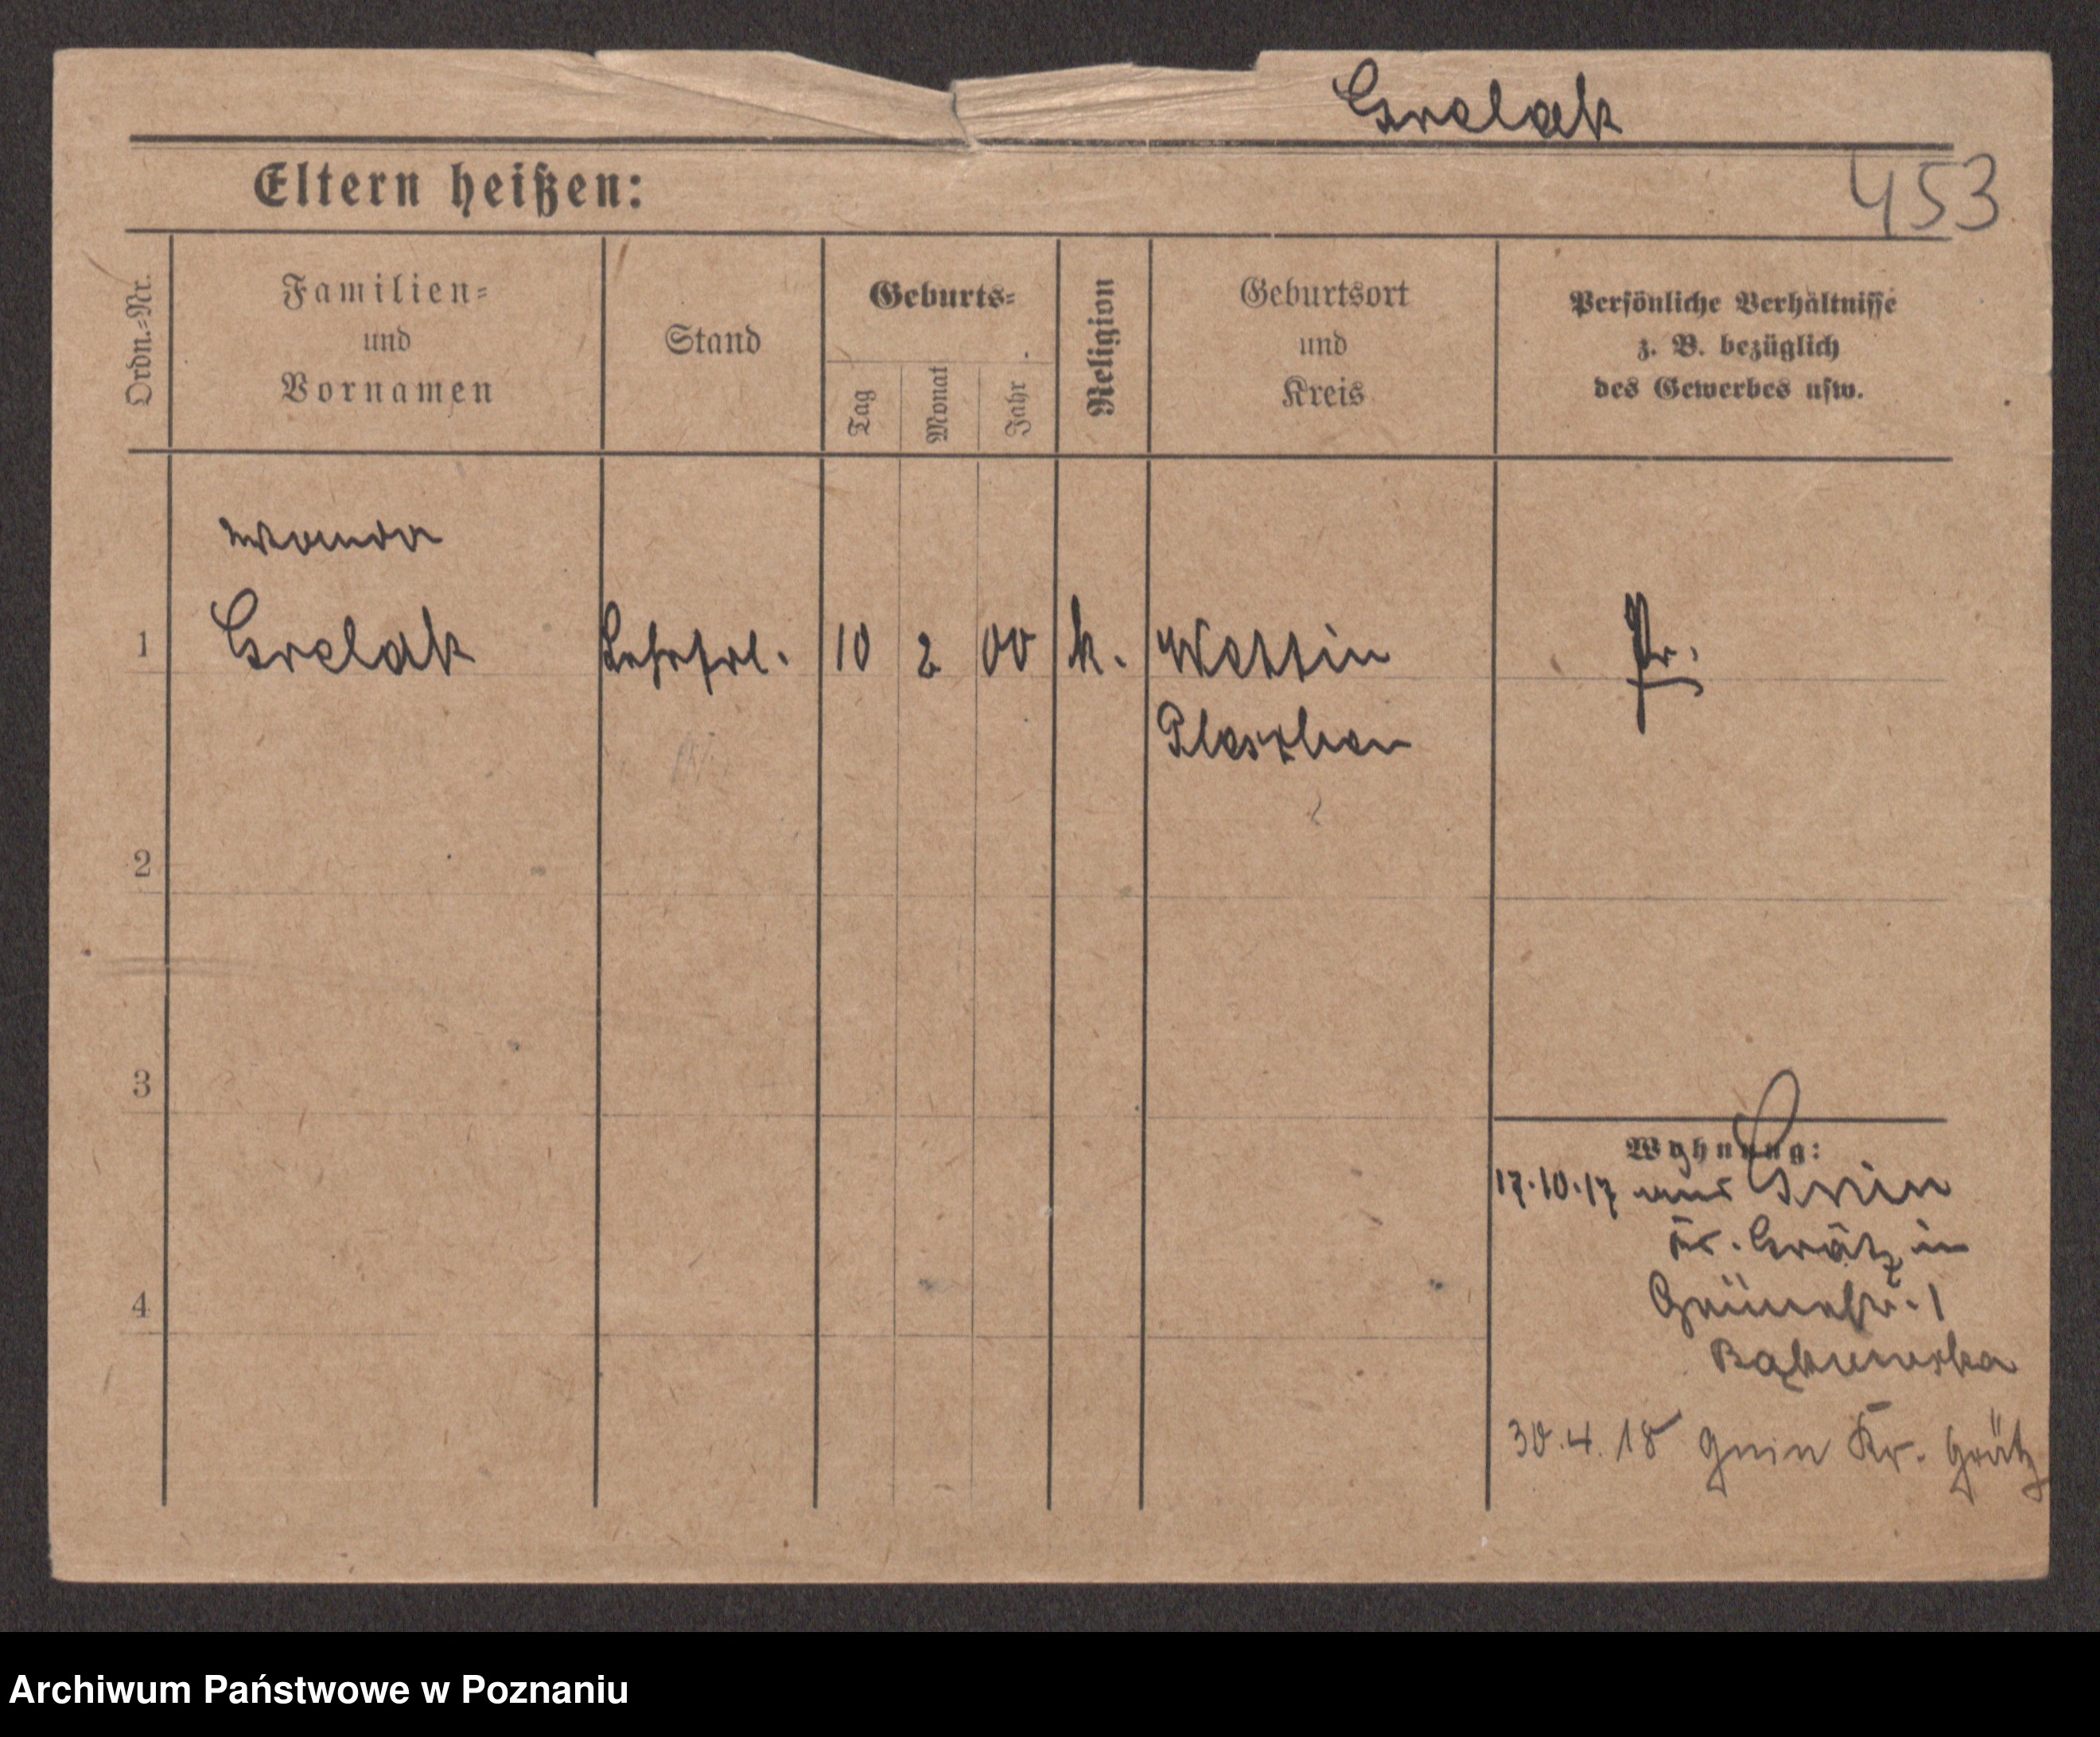 Grelak
453
Eltern heißen:
Ordn.-Nr.
Familien-
und
Vornamen
Stand
Geburts-
Tag
Monat
Jahr
Religion
Geburtsort
und
Kreis
Persönliche Verhältnisse
z. B. bezüglich
des Gewerbes usw.
Wanda
1 Grelak Lehrfrl. 10 2 00 k. Pr.
Pleschen
2
3
Wohnung:
17.10.17 aus Gnin
Kr. Grätz in
4
Grünestr. 1
30.4.18 Gnin Kr. Grätz
Archiwum Państwowe w Poznaniu